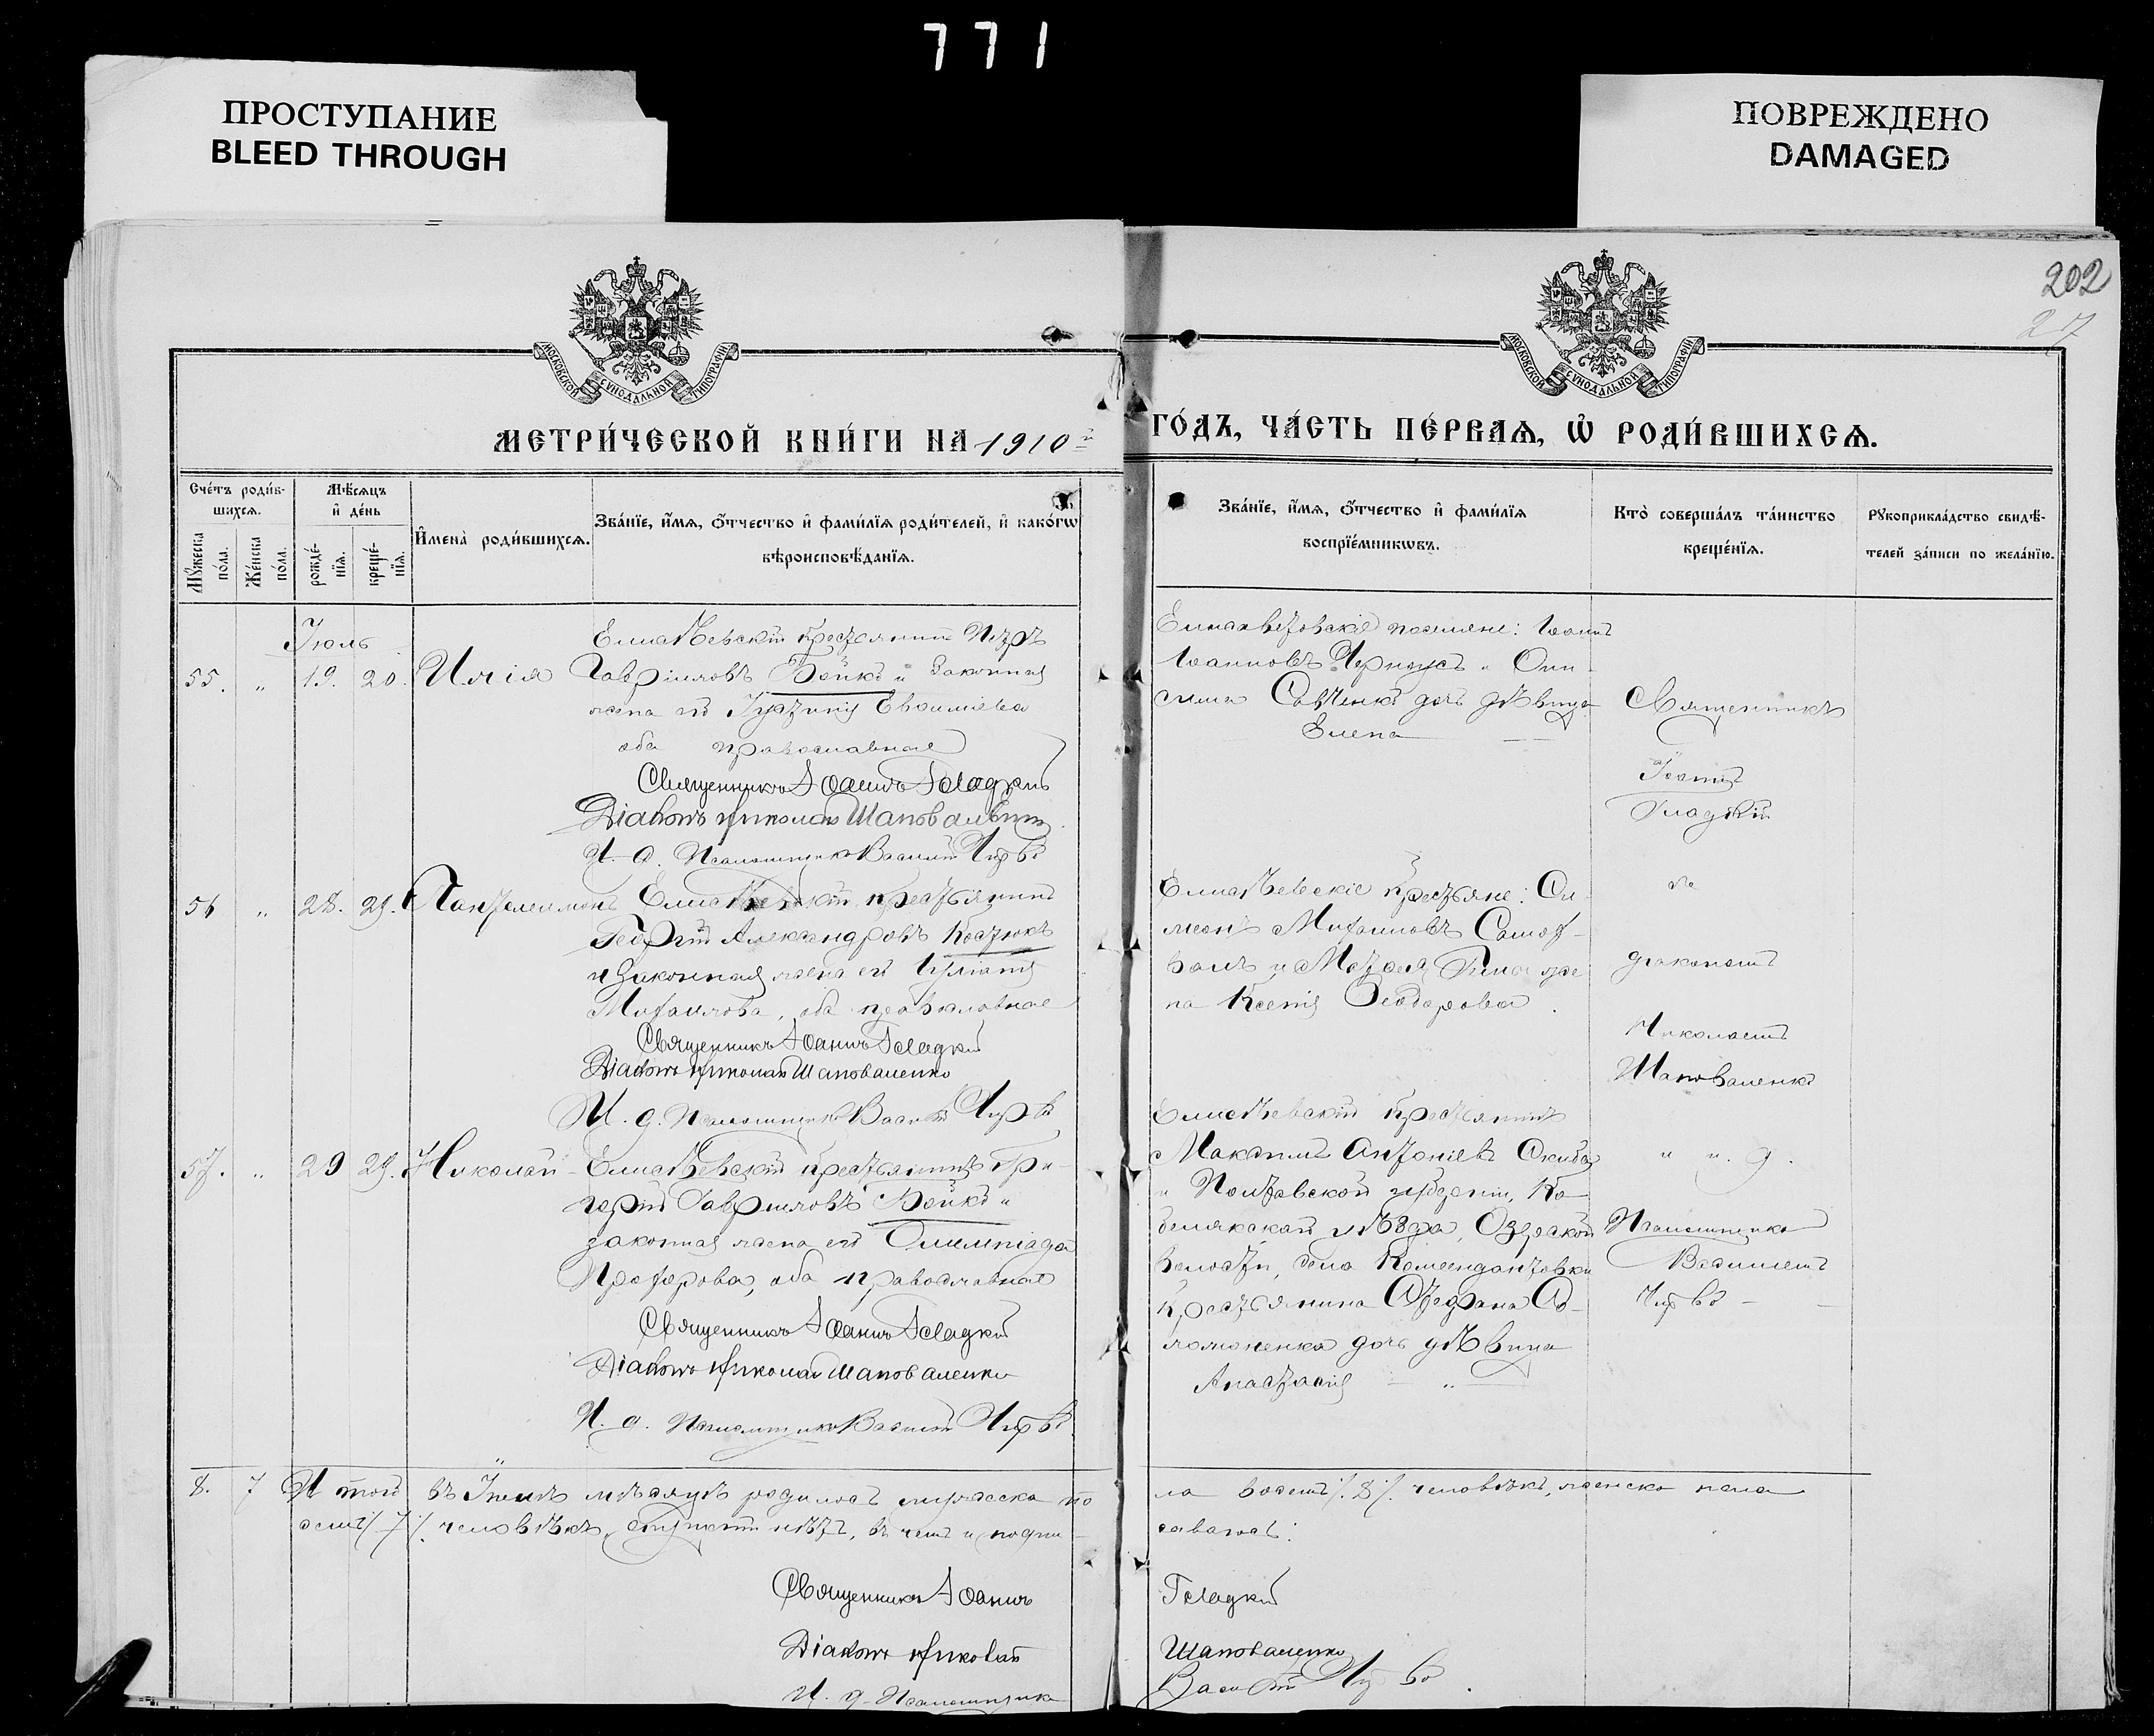 771
ПРОСТУПАНИЕ
BLEED THROUGH
ПОВРЕЖДЕНО
DAMAGED
202
27
МОСКОВСКОЙ СУНОДАЛЬНОЙ ТИПОГРАФІИ
МОСКОВСКОЙ СУНОДАЛЬНОЙ ТИПОГРАФІИ
МЕТРИ́ЧЕСКОЙ КНИ́ГИ НА 1910й
ГО́ДЪ, ЧА́СТЬ ПЕ́РВАѦ, Ѡ҆ РОДИ́ВШИХСѦ.
Сче́тъ роди́в-
шихсѧ.
Мꙋ́жеска
по́ла.
Же́нска
по́ла.
Мѣ́сѧцъ
и҆ де́нь
рожде́-
нїѧ.
креще́-
нїѧ.
И҆мена̀ роди́вшихсѧ.
Зва́нїе, и҆́мѧ, ѻ҆́тчество и҆ фами́лїѧ роди́телей, и҆ како́гѡ
вѣроисповѣ́данїѧ.
Зва́нїе, и҆́мѧ, ѻ҆́тчество и҆ фами́лїѧ
воспрїе́мникѡвъ.
Кто̀ соверша́лъ та́инство
креще́нїѧ.
Рꙋкоприкла́дство свидѣ́-
телей за́писи по жела́нїю.
Іюль
55. " 19. 20. Илія
крестьянинъ Петръ
Гавріиловъ Бойко и законная
жена его Евѳиміева
оба православные
Священникъ Іоаннъ Гладкій
Діаконъ Николай Шаповаленко
И. д. Псаломщика Василій
поселяне: Іоаннъ
Іоанновъ Черноусъ и Они-
сима Савченко дочь дѣвица
Елена
Священникъ
Іоаннъ
Гладкій
56 " 28. 29. Пантелеимонъ
крестьянинъ
Георгій Александровъ Костюкъ
и законная жена его Іуліанія
Михаилова, оба православные
Священникъ Іоаннъ Гладкій
Діаконъ Николай Шаповаленко
И. д. Псаломщика Василій
крестьяне: Си-
меонъ Михаиловъ Самой-
жена Ксенія Ѳеодорова.
діакономъ
Николаемъ
Шаповаленко
57. " 29 29. Николай
крестьянинъ Гри-
горій Гавриловъ Бойко и
законная жена его Олимпіада
Прохорова, оба православные
Священникъ Іоаннъ Гладкій
Діаконъ Николай Шаповаленко
И. д. Псаломщика Василій
крестьянинъ
Максимъ Антоніевъ Скиба
и Полтавской губерніи, Ко-
белякскаго уѣзда, Озерской
волости, села Комендантовки
крестьянина Стефана Со-
ломоненка дочь дѣвица
Анастасія
" и. д.
Псаломщика
Василіемъ
8. 7 Итого въ Іюлѣ мѣсяцѣ родилось мужеска по
ла восемь /8/ человѣкъ, женска пола
семь /7/ человѣкъ, въ чемъ и подпи
сываюсь:
Священникъ Іоаннъ Гладкій
Діаконъ Николай Шаповаленко
И. д. Псаломщика Василій